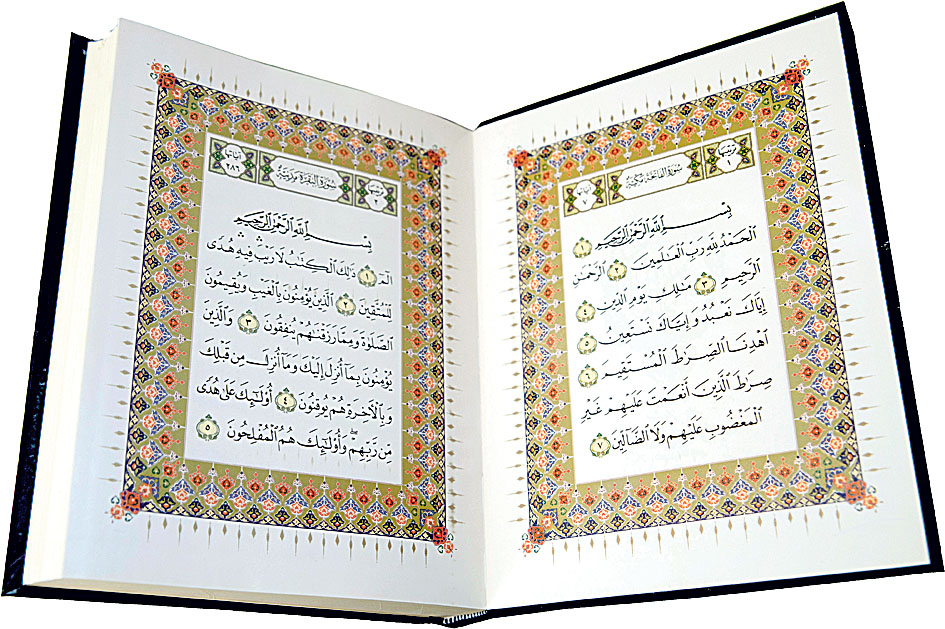 ترتيبها ١ سُورَةُ الفَاتِحَةِ مَكِّيَّةٌ آياتها ٧
بِسْمِ ٱللَّهِ ٱلرَّحْمَٰنِ ٱلرَّحِيمِ ١
ٱلْحَمْدُ لِلَّهِ رَبِّ ٱلْعَٰلَمِينَ ٢ ٱلرَّحْمَٰنِ
ٱلرَّحِيمِ ٣ مَٰلِكِ يَوْمِ ٱلدِّينِ ٤
إِيَّاكَ نَعْبُدُ وَإِيَّاكَ نَسْتَعِينُ ٥
ٱهْدِنَا ٱلصِّرَٰطَ ٱلْمُسْتَقِيمَ ٦
صِرَٰطَ ٱلَّذِينَ أَنْعَمْتَ عَلَيْهِمْ غَيْرِ
ٱلْمَغْضُوبِ عَلَيْهِمْ وَلَا ٱلضَّآلِّينَ ٧
ترتيبها ٢ سُورَةُ البَقَرَةِ مَدَنِيَّةٌ آياتها ٢٨٦
بِسْمِ ٱللَّهِ ٱلرَّحْمَٰنِ ٱلرَّحِيمِ
الٓمٓ ١ ذَٰلِكَ ٱلْكِتَٰبُ لَا رَيْبَ ۛ فِيهِ ۛ هُدًى
لِّلْمُتَّقِينَ ٢ ٱلَّذِينَ يُؤْمِنُونَ بِٱلْغَيْبِ وَيُقِيمُونَ
ٱلصَّلَوٰةَ وَمِمَّا رَزَقْنَٰهُمْ يُنفِقُونَ ٣ وَٱلَّذِينَ
يُؤْمِنُونَ بِمَآ أُنزِلَ إِلَيْكَ وَمَآ أُنزِلَ مِن قَبْلِكَ
وَبِٱلْءَاخِرَةِ هُمْ يُوقِنُونَ ٤ أُو۟لَٰٓئِكَ عَلَىٰ هُدًى
مِّن رَّبِّهِمْ ۖ وَأُو۟لَٰٓئِكَ هُمُ ٱلْمُفْلِحُونَ ٥